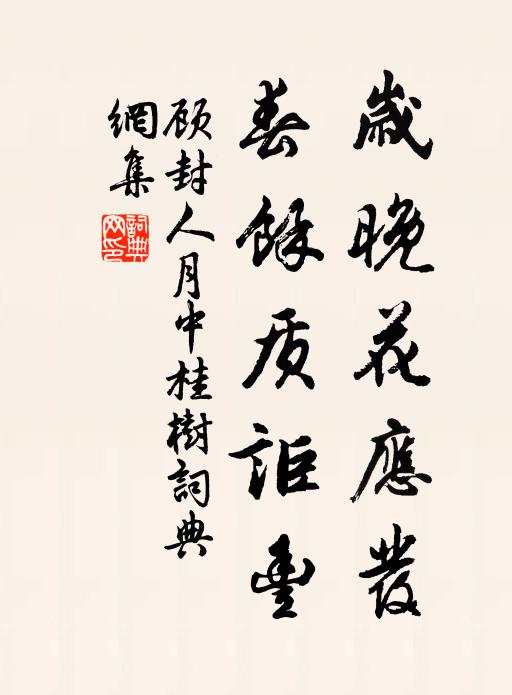 歲晚花應發
春餘质詎豊
顾封人月中桂樹詞典
網集
詞典
网印